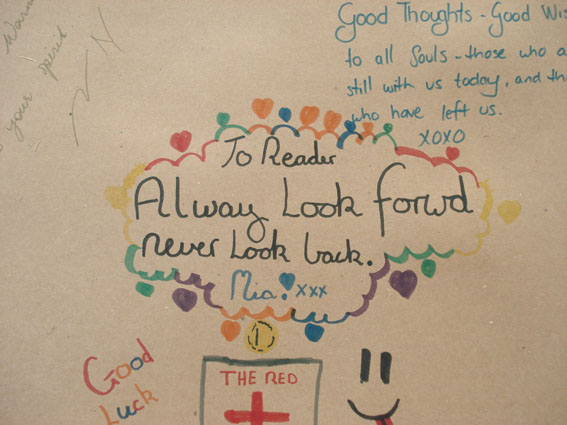 Warm
your spirit
Good Thoughts - Good Wis
to all Souls - those who a
still with us today, and th
who have left us.
XOXO
To Reader
Alway Look forwd
never Look back.
Mia! xxx
1
Good
Luck
THE RED